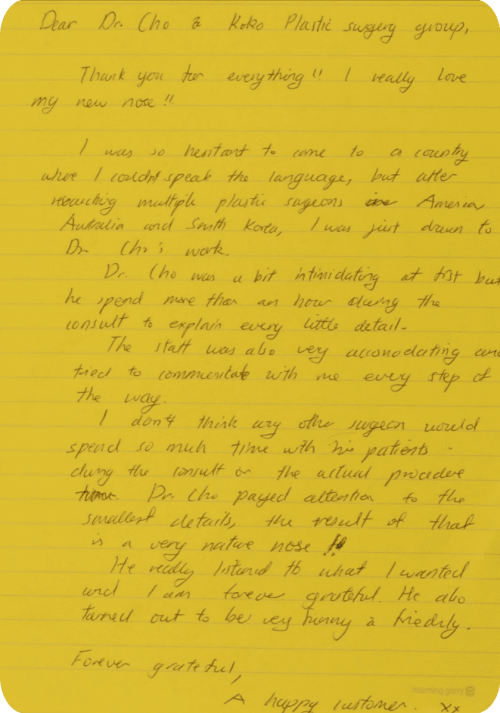 Dear Dr. Cho & Koko Plastic surgery group,
Thank you for everything!! I really love
my new nose!!
I was so hesitant to come to a country
where I couldn't speak the language, but after
researching multiple plastic surgeons in America
Australia and South Korea, I was just drawn to
Dr. Cho's work.
Dr. Cho was a bit intimidating at first but
he spend more than an hour during the
consult to explain every little detail.
The staff was also very accomodating and
tried to commenicate with me every step of
the way.
I don't think any other surgeon would
spend so much time with his patients -
during the consult or the actual procedure
Dr. Cho payed attention to the
smallest details, the result of that
is a very native nose !!
He really listened to what I wanted
and I am forever grateful. He also
turned out to be very funny & friendly.
Forever grateful,
A happy customer. xx
morning glory